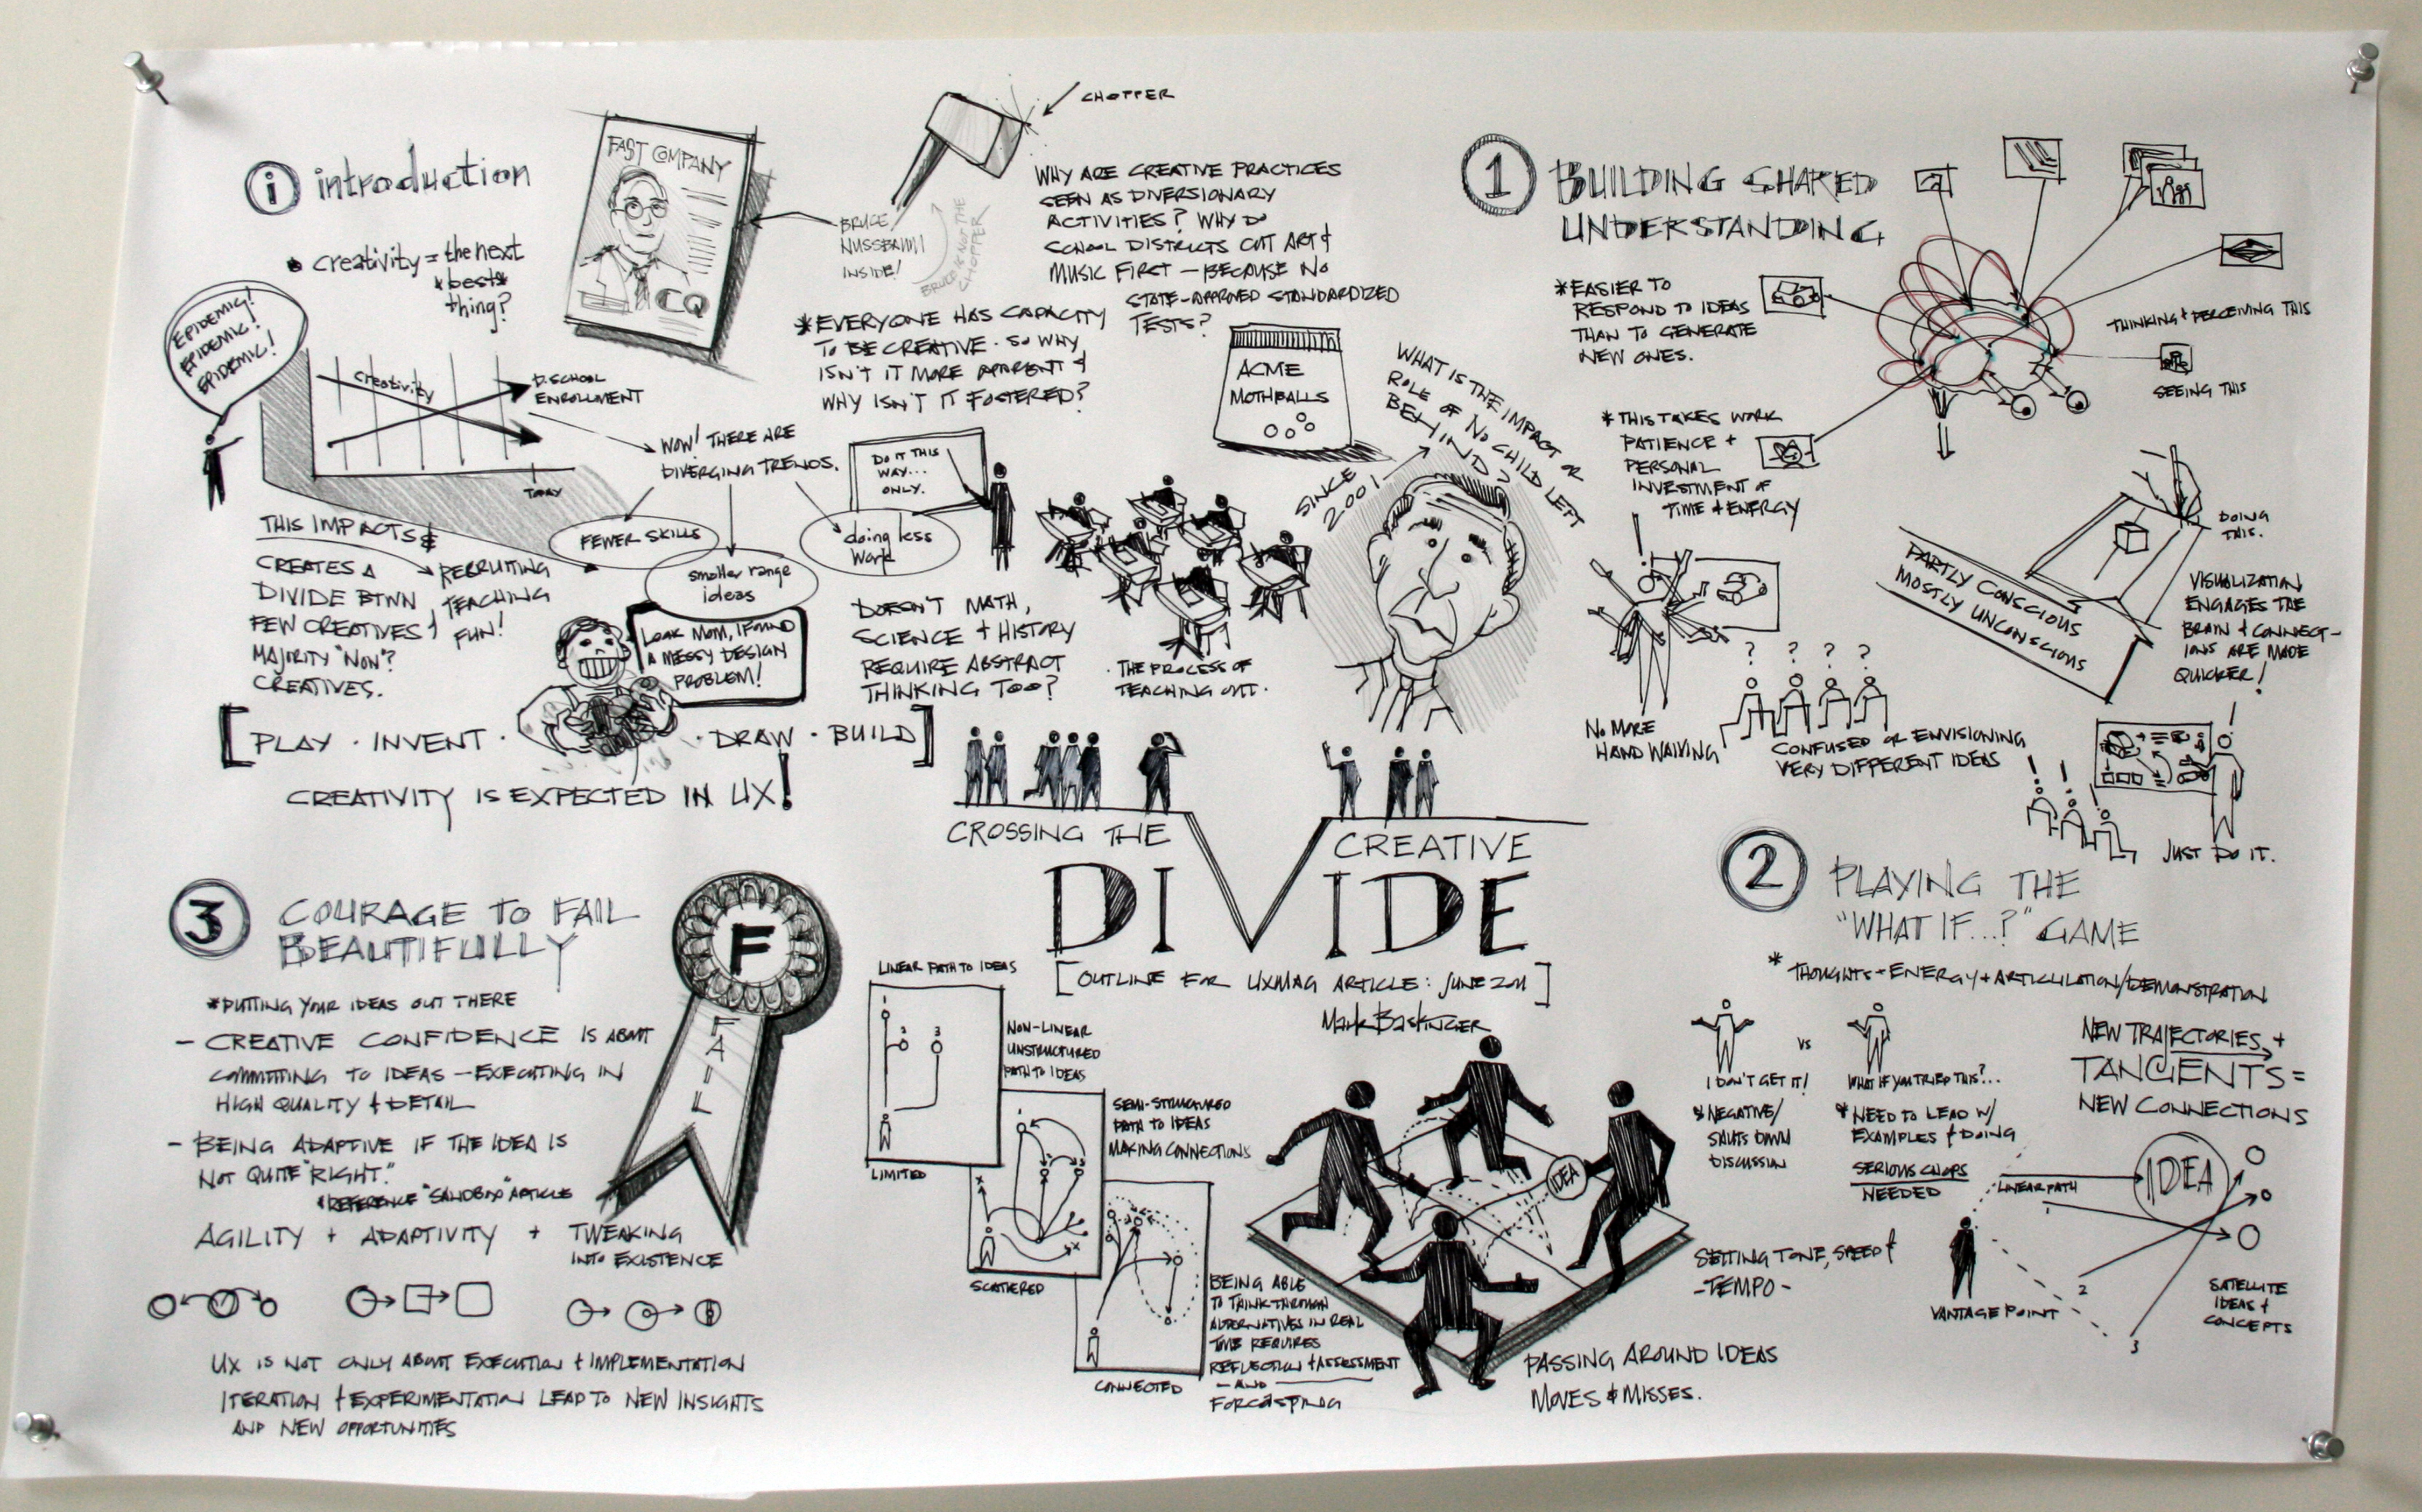 i introduction
• creativity = the next
*best*
thing?
EPIDEMIC!
EPIDEMIC!
EPIDEMIC!
creativity
D.SCHOOL
ENROLLMENT
TODAY
FAST COMPANY
CQ
BRUCE
NUSSBAUM
INSIDE!
BRUCE IS NOT THE
CHOPPER
CHOPPER
WHY ARE CREATIVE PRACTICES
SEEN AS DIVERSIONARY
ACTIVITIES? WHY DO
SCHOOL DISTRICTS CUT ART &
MUSIC FIRST – BECAUSE NO
STATE-APPROVED STANDARDIZED
TESTS?
* EVERYONE HAS CAPACITY
TO BE CREATIVE. SO WHY
ISN'T IT MORE APPARENT &
WHY ISN'T IT FOSTERED?
ACME
MOTHBALLS
WHAT IS THE IMPACT OR
ROLE OF NO CHILD LEFT
BEHIND?
SINCE
2001
WOW! THERE ARE
DIVERGING TRENDS.
FEWER SKILLS
smaller range
ideas
doing less
work
DO IT THIS
WAY...
ONLY.
THIS IMPACTS &
CREATES A
DIVIDE BTWN
FEW CREATIVES &
MAJORITY "NON"?
CREATIVES.
RECRUITING
TEACHING
FUN!
LOOK MOM, I FOUND
A MESSY DESIGN
PROBLEM!
DOESN'T MATH,
SCIENCE + HISTORY
REQUIRE ABSTRACT
THINKING TOO?
. THE PROCESS OF
TEACHING OUT.
[PLAY · INVENT · · DRAW · BUILD]
CREATIVITY IS EXPECTED IN UX!
CROSSING THE
CREATIVE
DIVIDE
[OUTLINE FOR UXMAG ARTICLE: JUNE 2011]
Mark Baskinger
1 BUILDING SHARED
UNDERSTANDING
* EASIER TO
RESPOND TO IDEAS
THAN TO GENERATE
NEW ONES.
* THIS TAKES WORK
PATIENCE +
PERSONAL
INVESTMENT OF
TIME + ENERGY
THINKING + PERCEIVING THIS
SEEING THIS
DOING
THIS.
PARTLY CONSCIOUS
MOSTLY UNCONSCIOUS
VISUALIZATION
ENGAGES THE
BRAIN & CONNECT-
IONS ARE MADE
QUICKER!
!
? ? ? ?
NO MORE
HAND WAIVING
CONFUSED OR ENVISIONING
VERY DIFFERENT IDEAS
! ! !
JUST DO IT.
2 PLAYING THE
"WHAT IF...?" GAME
* THOUGHTS + ENERGY + ARTICULATION/DEMONSTRATION
VS
I DON'T GET IT!
* NEGATIVE/
SHUTS DOWN
DISCUSSION
WHAT IF YOU TRIED THIS?...
* NEED TO LEAD W/
EXAMPLES & DOING
SERIOUS CHOPS
NEEDED
NEW TRAJECTORIES +
TANGENTS =
NEW CONNECTIONS
LINEAR PATH
IDEA
1
2
3
VANTAGE POINT
SATELLITE
IDEAS &
CONCEPTS
SETTING TONE, SPEED &
- TEMPO -
IDEA
PASSING AROUND IDEAS
MOVES & MISSES.
3 COURAGE TO FAIL
BEAUTIFULLY
* PUTTING YOUR IDEAS OUT THERE
– CREATIVE CONFIDENCE IS ABOUT
COMMITTING TO IDEAS – EXECUTING IN
HIGH QUALITY & DETAIL
– BEING ADAPTIVE IF THE IDEA IS
NOT QUITE "RIGHT."
* REFERENCE "SANDBOX" ARTICLE
AGILITY + ADAPTIVITY + TWEAKING
INTO EXISTENCE
UX IS NOT ONLY ABOUT EXECUTION & IMPLEMENTATION
ITERATION & EXPERIMENTATION LEAD TO NEW INSIGHTS
AND NEW OPPORTUNITIES
F
FAIL
LINEAR PATH TO IDEAS
1
2 3
LIMITED
NON-LINEAR
UNSTRUCTURED
PATH TO IDEAS
SCATTERED
SEMI-STRUCTURED
PATH TO IDEAS
MAKING CONNECTIONS
CONNECTED
BEING ABLE
TO THINK-THROUGH
ALTERNATIVES IN REAL
TIME REQUIRES
REFLECTION & ASSESSMENT
– AND
FORECASTING